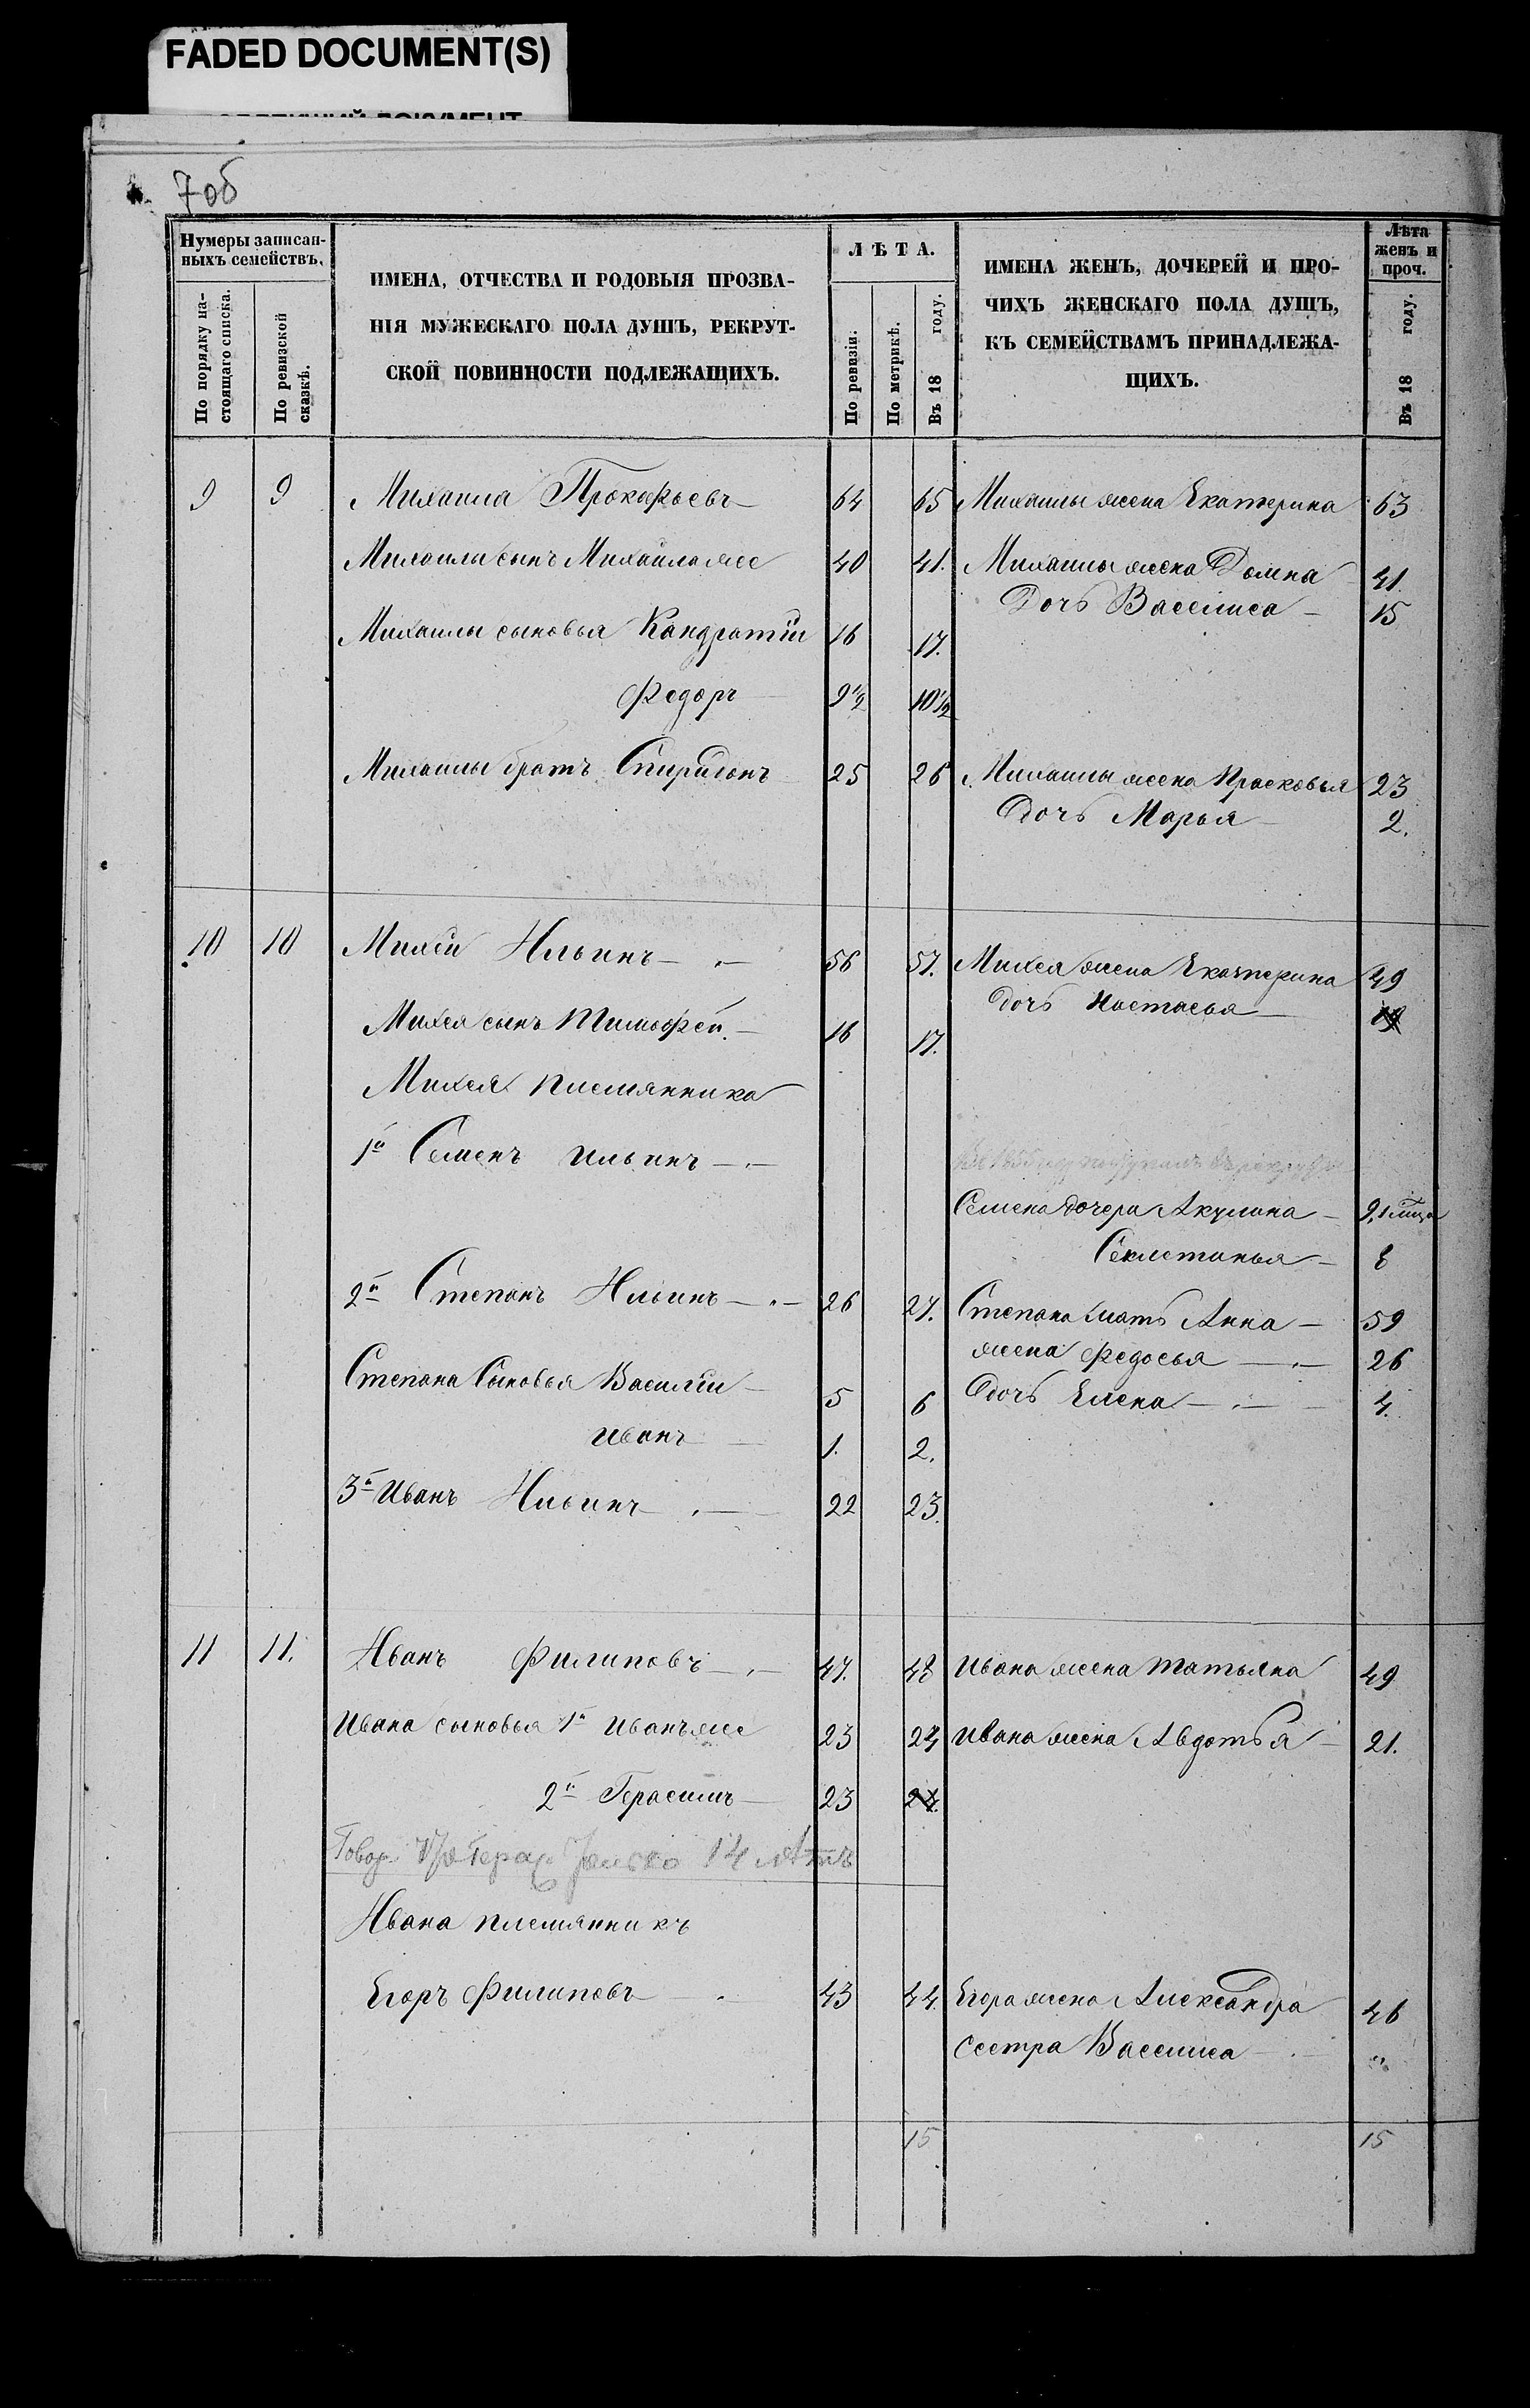 FADED DOCUMENT(S)
7об
Нумеры записан-
ныхъ семействъ.
По порядку на-
стоящаго списка.
По ревизской
сказкѣ.
ИМЕНА, ОТЧЕСТВА И РОДОВЫЯ ПРОЗВА-
НІЯ МУЖЕСКАГО ПОЛА ДУШЪ, РЕКРУТ-
СКОЙ ПОВИННОСТИ ПОДЛЕЖАЩИХЪ.
ЛѢТА.
По ревизіи.
По метрикѣ.
Въ 18 году.
ИМЕНА ЖЕНЪ, ДОЧЕРЕЙ И ПРО-
ЧИХЪ ЖЕНСКАГО ПОЛА ДУШЪ,
КЪ СЕМЕЙСТВАМЪ ПРИНАДЛЕЖА-
ЩИХЪ.
Лѣта
женъ и
проч.
Въ 18 году.
9 9 Михаила Прокофьевъ 64 65 Михаилы жена Екатерина 63
Михаилы сынъ Михайла же 40 41. Михаилы жена Домна 41
Дочь Вассилиса 15
Михаилы сыновья Кандратій 16 17.
Федоръ 9 1/2 10 1/2
Михаилы братъ Спиридонъ 25 26 Михаилы жена Прасковья 23
Дочь Марья 2.
10 10 Михей Ильинъ 56 57. Михея жена Екатерина 49
дочь Настасья 19
Михея сынъ Тимофей 16 17.
Михея племянника
1й Семенъ Ильинъ
Семена дочери Акулина 9,1 мца
Секлетинья 8
2й Степанъ Ильинъ 26 27. Степана мать Анна 59
жена Федосья 26
Степана Сыновья Василій 5 6 Дочь Елена 4.
Иванъ 1. 2.
3й Иванъ Ильинъ 22 23.
11 11. Иванъ Филиповъ 47. 48 Ивана жена Татьяна 49
Ивана сыновья 1й Иванъ же 23 24 Ивана жена Авдотья 21.
2й Герасимъ 23 24.
14 лѣтъ
Ивана племянникъ
Егоръ Филиповъ 43 44. Егора жена Александра 46
сестра Вассилиса "
15 15